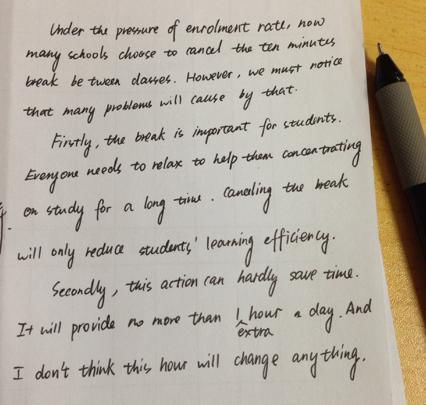 Under the pressure of enrolment rate, now
many schools choose to cancel the ten minutes
break be tween classes. However, we must notice
that many problems will cause by that.
Firstly, the break is important for students.
Everyone needs to relax to help them concentrating
on study for a long time. Canceling the break
will only reduce students' learning efficiency.
Secondly, this action can hardly save time.
It will provide no more than 1 hour a day. And
extra
I don't think this hour will change anything.